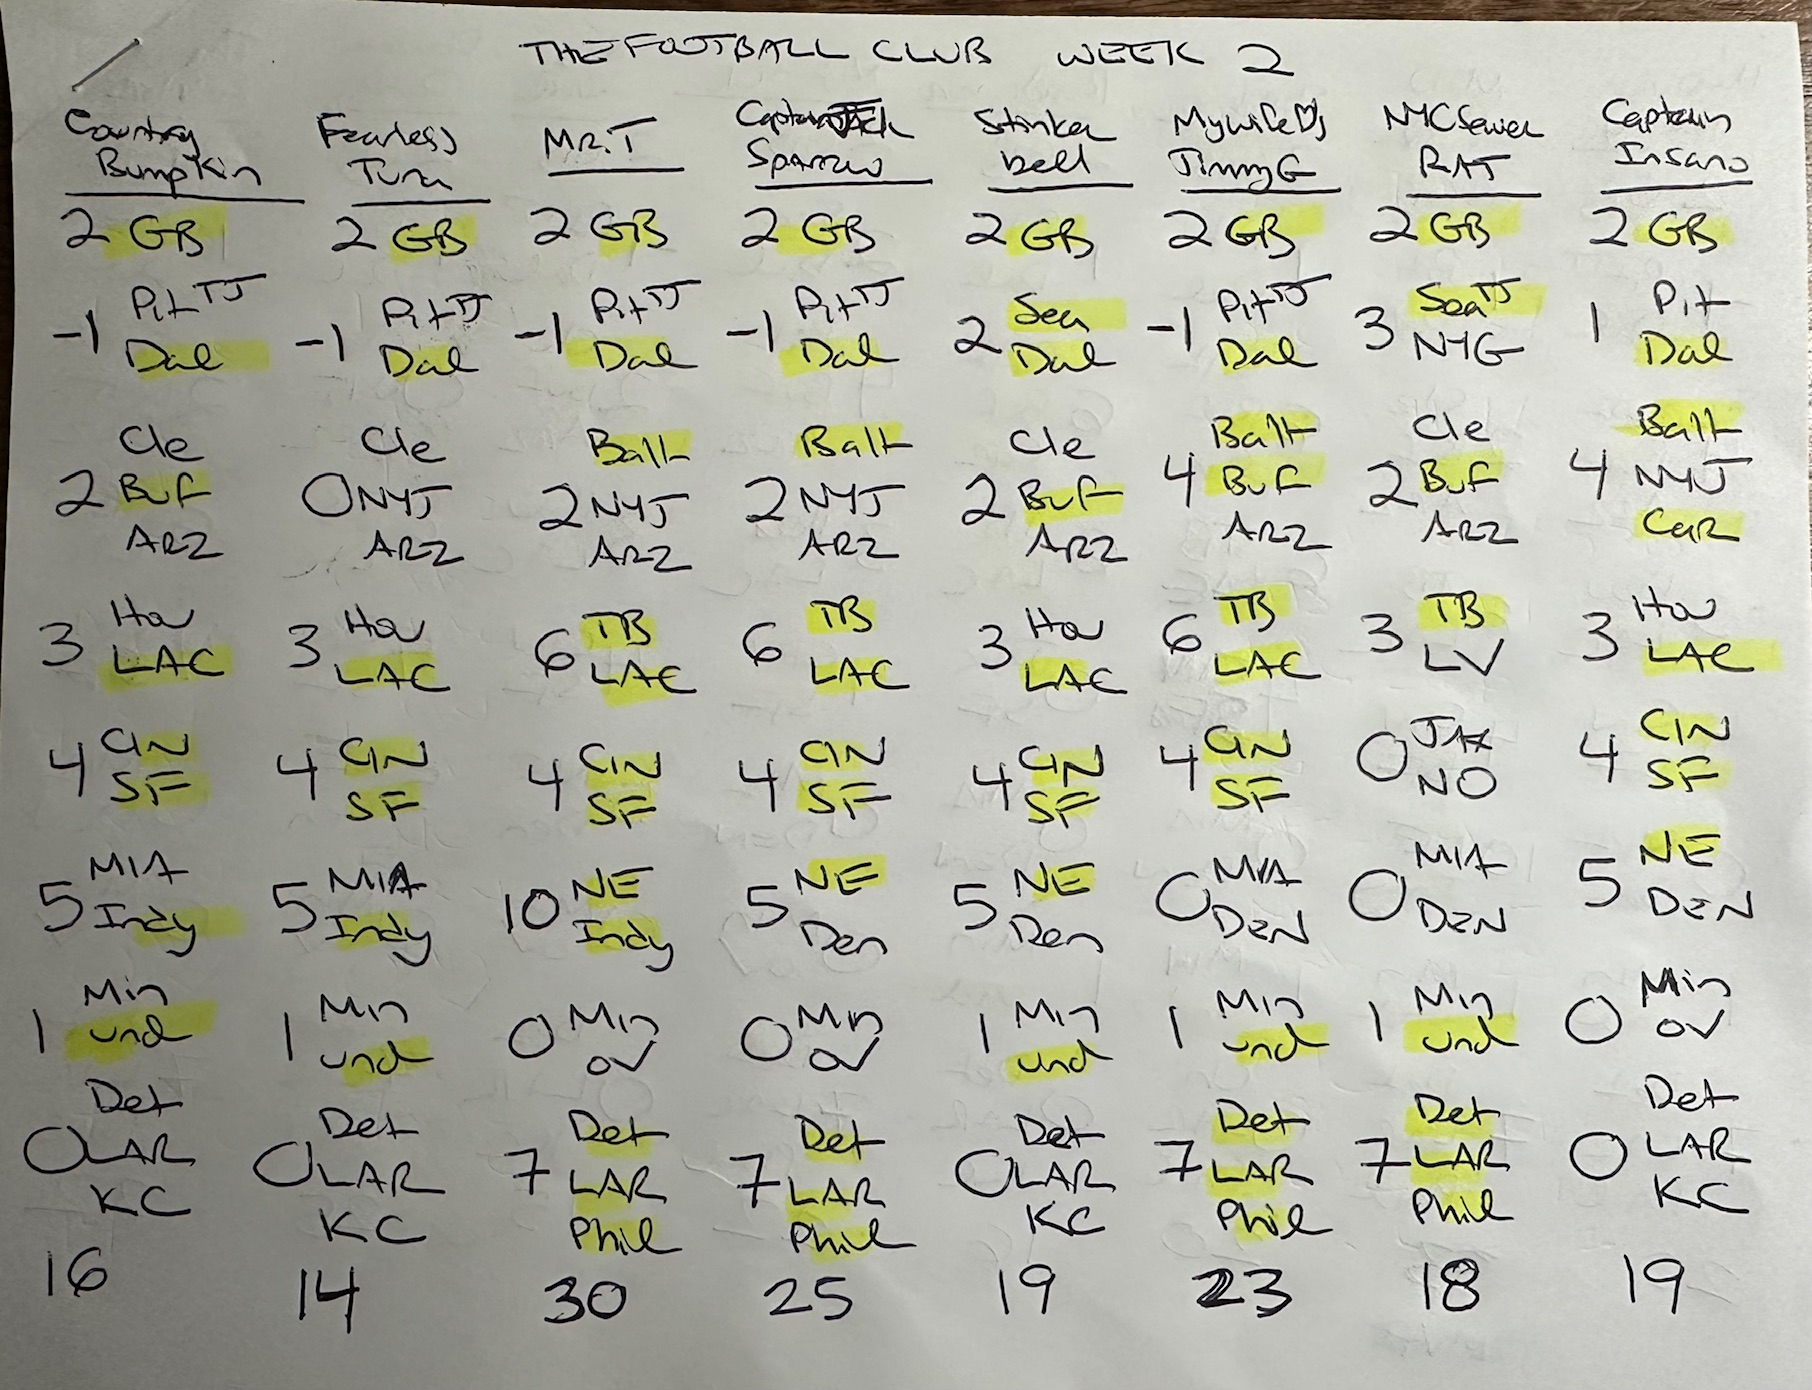 THE FOOTBALL CLUB WEEK 2
Country Fearless Mr. T Captain Jack Stinker My wife ♡s NYC Sewer Captain
Bumpkin Tuna Sparrow bell Jimmy G RAT Insano
2 GB 2 GB 2 GB 2 GB 2 GB 2 GB 2 GB 2 GB
Pit TJ Pit TJ Pit TJ Pit TJ Sea Pit TJ Sea TJ Pit
-1 Dal -1 Dal -1 Dal -1 Dal 2 Dal -1 Dal 3 NYG 1 Dal
Cle Cle Balt Balt Cle Balt Cle Balt
2 BUF 0 NYJ 2 NYJ 2 NYJ 2 BUF 4 BUF 2 BUF 4 NYJ
ARZ ARZ ARZ ARZ ARZ ARZ ARZ CAR
Hou Hou TB TB Hou TB TB Hou
3 LAC 3 LAC 6 LAC 6 LAC 3 LAC 6 LAC 3 LV 3 LAC
4 CIN 4 CIN 4 CIN 4 CIN 4 CIN 4 CIN 0 JAX 4 CIN
SF SF SF SF SF SF NO SF
MIA MIA NE NE NE MIA MIA NE
5 Indy 5 Indy 10 Indy 5 Den 5 Den 0 DEN 0 DEN 5 DEN
Min Min Min Min Min Min Min Min
1 und 1 und 0 OV 0 OV 1 und 1 und 1 und 0 OV
Det Det Det Det Det Det Det Det
0 LAR 0 LAR 7 LAR 7 LAR 0 LAR 7 LAR 7 LAR 0 LAR
KC KC Phil Phil KC Phil Phil KC
16 14 30 25 19 23 18 19